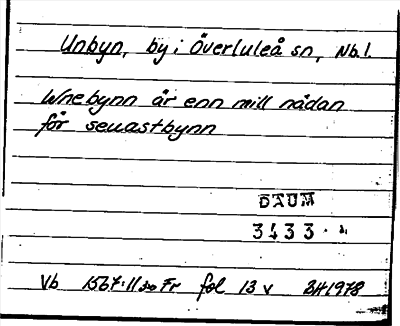 Unbyn, by i Överluleå sn, Nb.l.
Wnebynn är enn mill nådan
för seuastbynn
DATUM
3433
Vb 1567:11 fol 13 v BH 1978